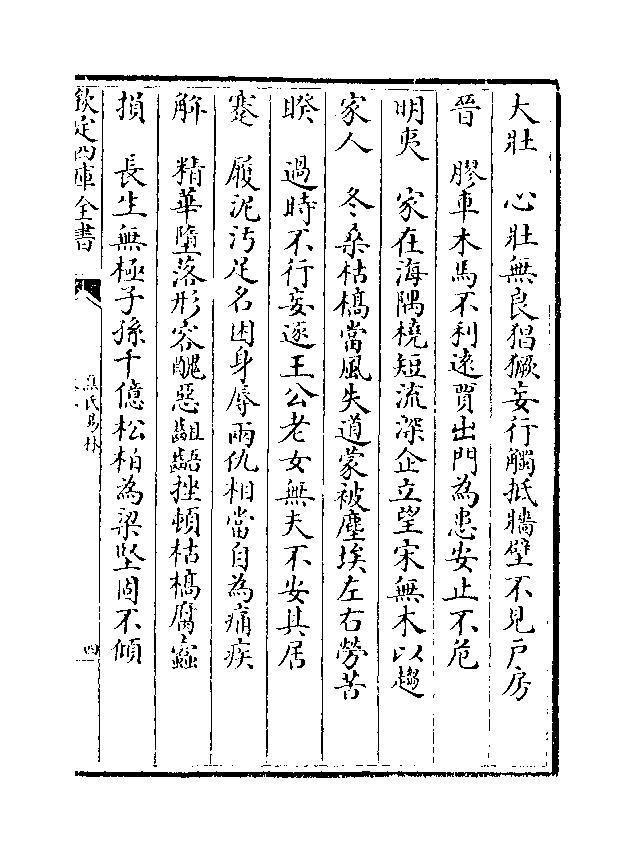 大壯　心壯無良猖獗妄行觸抵牆壁不見戸房
晉　膠車木馬不利逺賈出門為患安止不危
明夷　家在海隅橈短流深企立望宋無木以趨
家人　冬桑枯槁當風失道蒙被塵埃左右勞苦
睽　過時不行妄逐王公老女無夫不安其居
蹇　履泥汚足名困身辱兩仇相當自為痛疾
解　精華墮落形容醜惡齟齬挫頓枯槁腐蠧
損　長生無極子孫千億松柏為梁堅固不傾
欽定四庫全書
焦氏易林
四